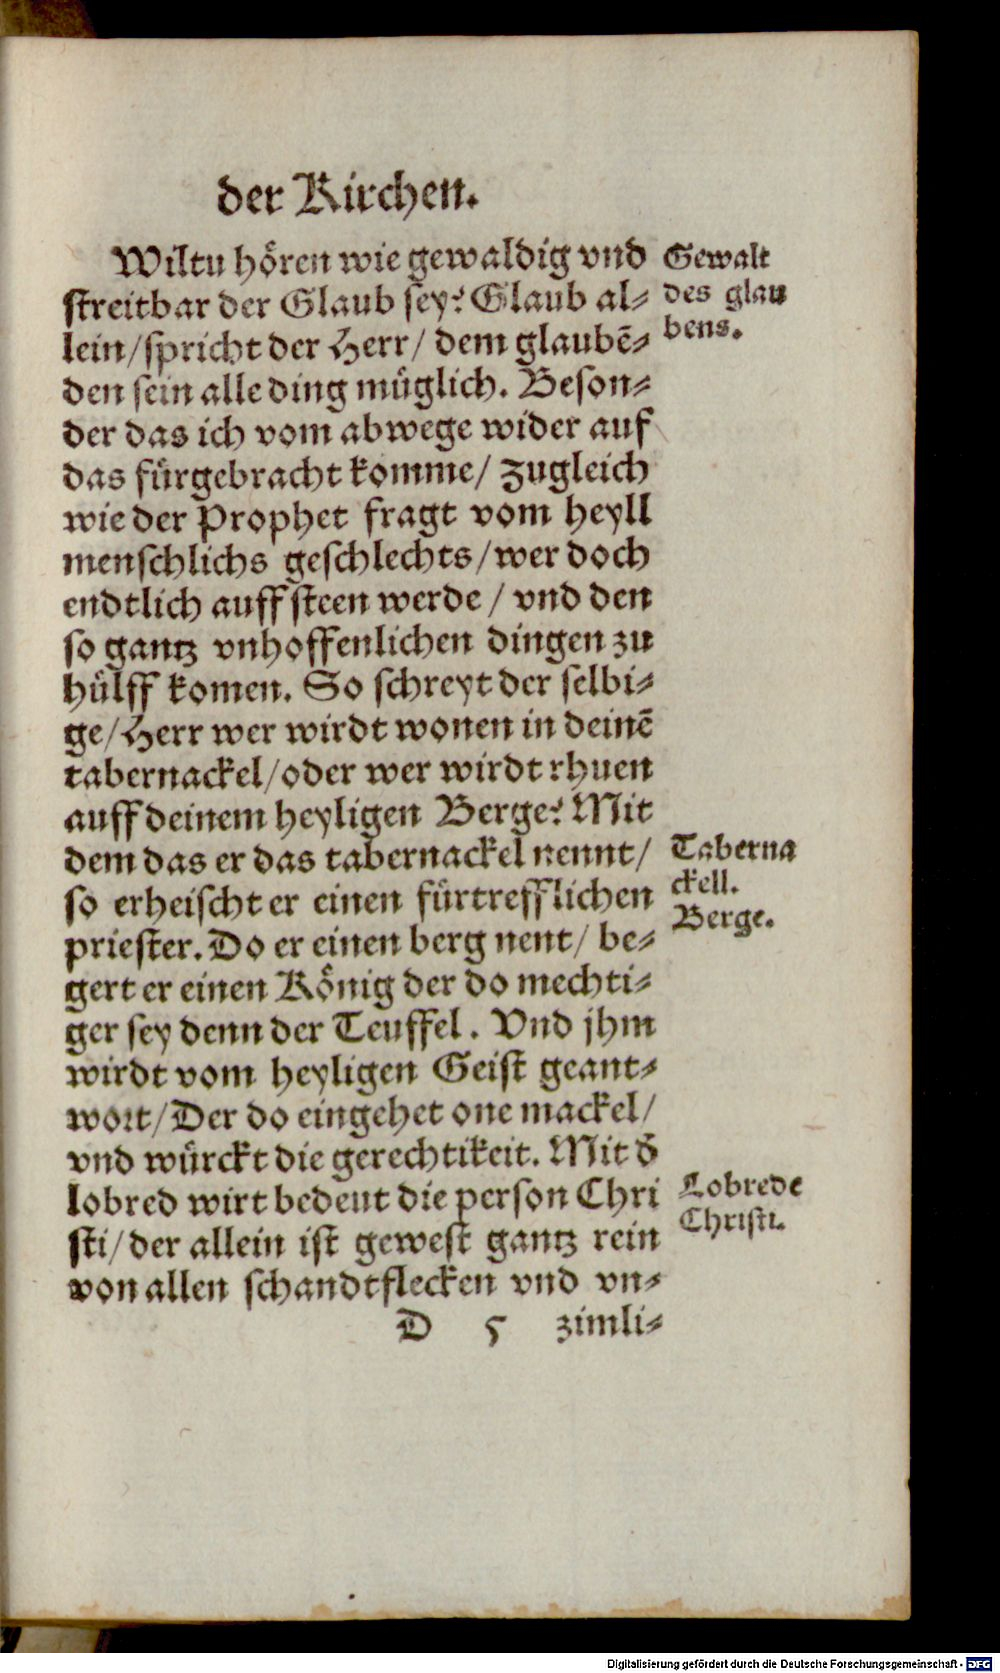 der Kirchen.
Wiltu hören wie gewaldig vnd
streitbar der Glaub sey? Glaub al-
lein/ spricht der Herr/ dem glaubē-
den sein alle ding müglich. Beson-
der das ich vom abwege wider auf
das fürgebracht komme/ zugleich
wie der Prophet fragt vom heyll
menschlichs geschlechts/ wer doch
endtlich auff steen werde / vnd den
so gantz vnhoffenlichen dingen zu
hülff komen. So schreyt der selbi-
ge/ Herr wer wirdt wonen in deinē
tabernackel/ oder wer wirdt rhuen
auff deinem heyligen Berge? Mit
dem das er das tabernackel nennt/
so erheischt er einen fürtrefflichen
priester. Do er einen berg nent/ be-
gert er einen König der do mechti-
ger sey denn der Teuffel. Vnd jhm
wirdt vom heyligen Geist geant-
wort/ Der do eingehet one mackel/
vnd würckt die gerechtikeit. Mit ď
lobred wirt bedeut die person Chri
sti/ der allein ist gewest gantz rein
von allen schandtflecken vnd vn-
D 5 zimli-
Gewalt
des glau
bens.
Taberna
ckell.
Berge.
Lobrede
Christi.
Digitalisierung gefördert durch die Deutsche Forschungsgemeinschaft - DFG